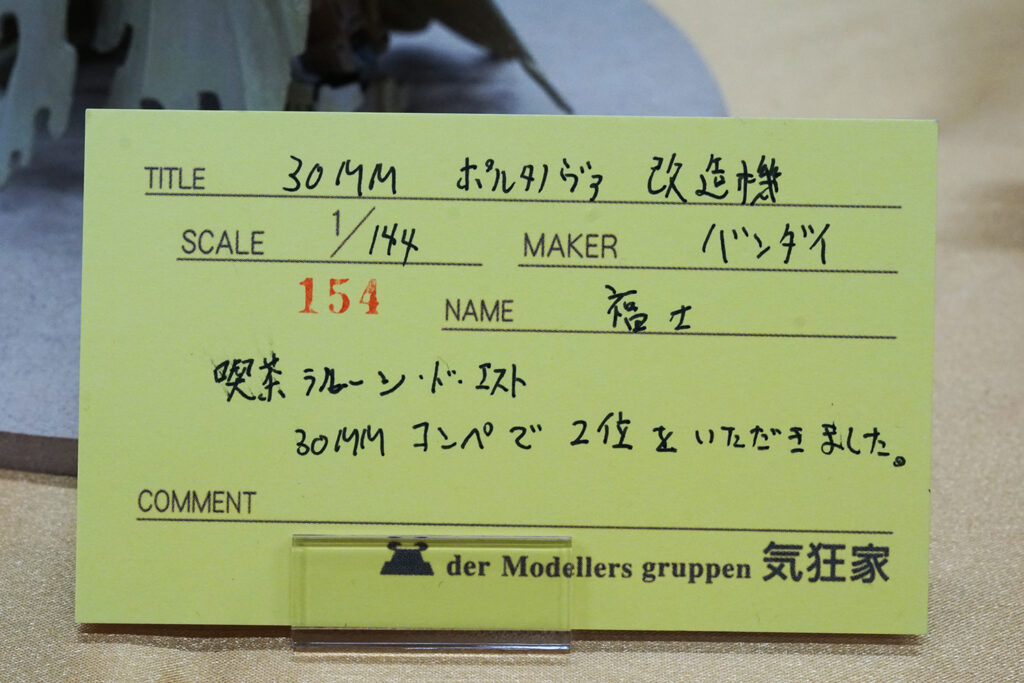 TITLE 30MM ポルタノヴァ 改造機
SCALE 1/144 MAKER バンダイ
154 NAME 福士
喫茶 ラルーン・ド・エスト
30MM コンペで 2位をいただきました。
COMMENT
der Modellers gruppen 気狂家